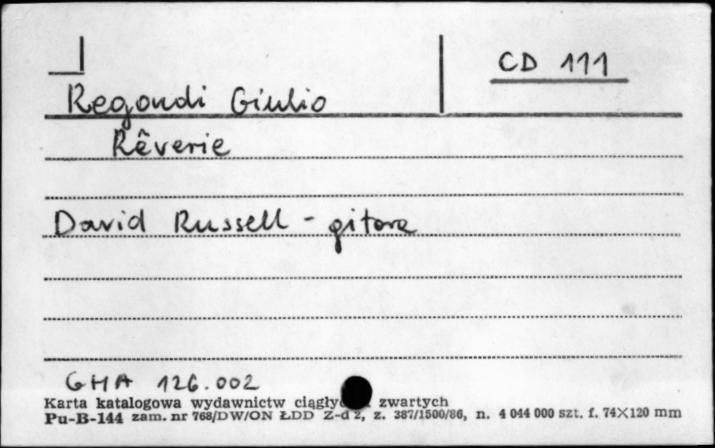 CD 111
Regondi Giulio
Rêverie
David Russell - gitara
GHA 126.002
Karta katalogowa wydawnictw ciągły zwartych
Pu-B-144 zam. nr 768/DW/ON ŁDD Z-d 2, z. 387/1500/86, n. 4 044 000 szt. f. 74×120 mm